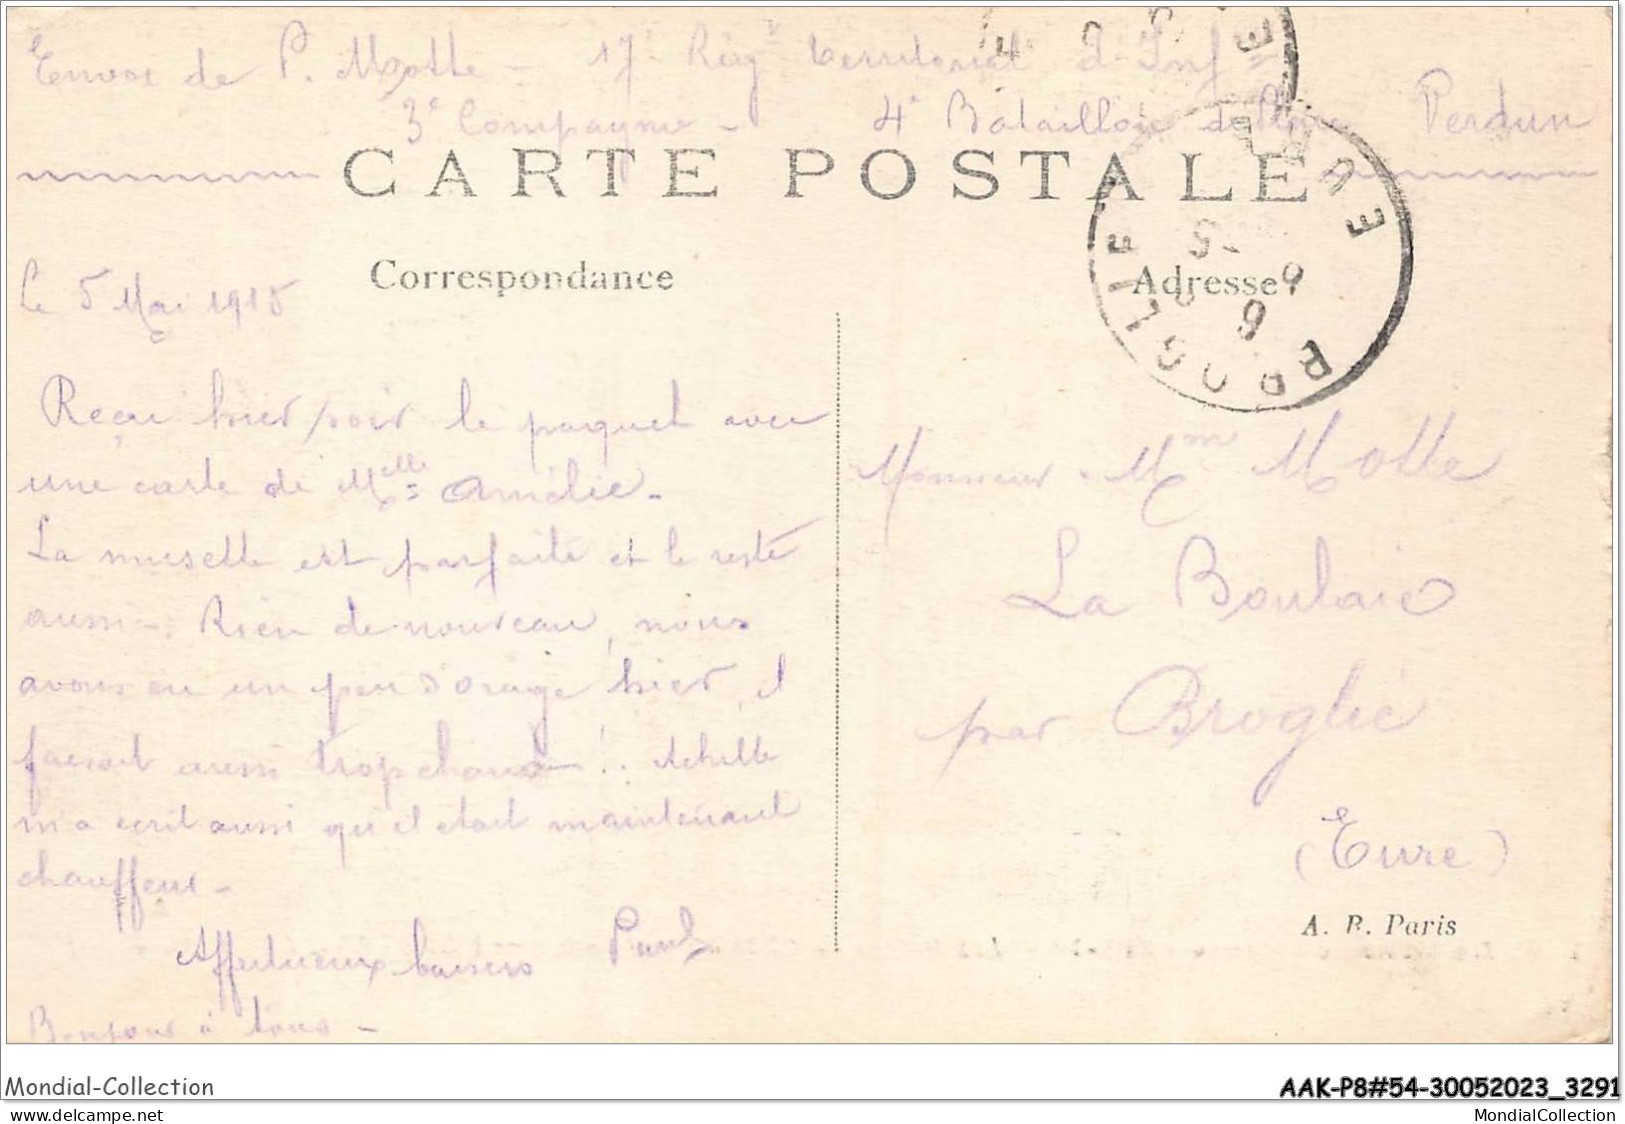 Envoi de P. Motte - 17e Régt territorial d'Inf
3e Compagnie - 4e Bataillon de Verdun
CARTE POSTALE
Correspondance
Le 5 Mai 1915
Reçu hier soir le paquet avec
une carte de Melle Amélie -
La musette est parfaite et le reste
aussi - Rien de nouveau, nous
avons eu un peu d'orage hier, il
faisait aussi trop chaud - !. Achille
m'a écrit aussi qu'il était maintenant
chauffeur -
Affectueux baisers Paul
Bonjour à tous -
Adresse
BROGLIE
EURE
Monsieur - Mme Motte
La Boulaie
par Broglie
(Eure)
A. B. Paris
Mondial-Collection
AAK-P8#54-30052023_3291
www.delcampe.net
MondialCollection